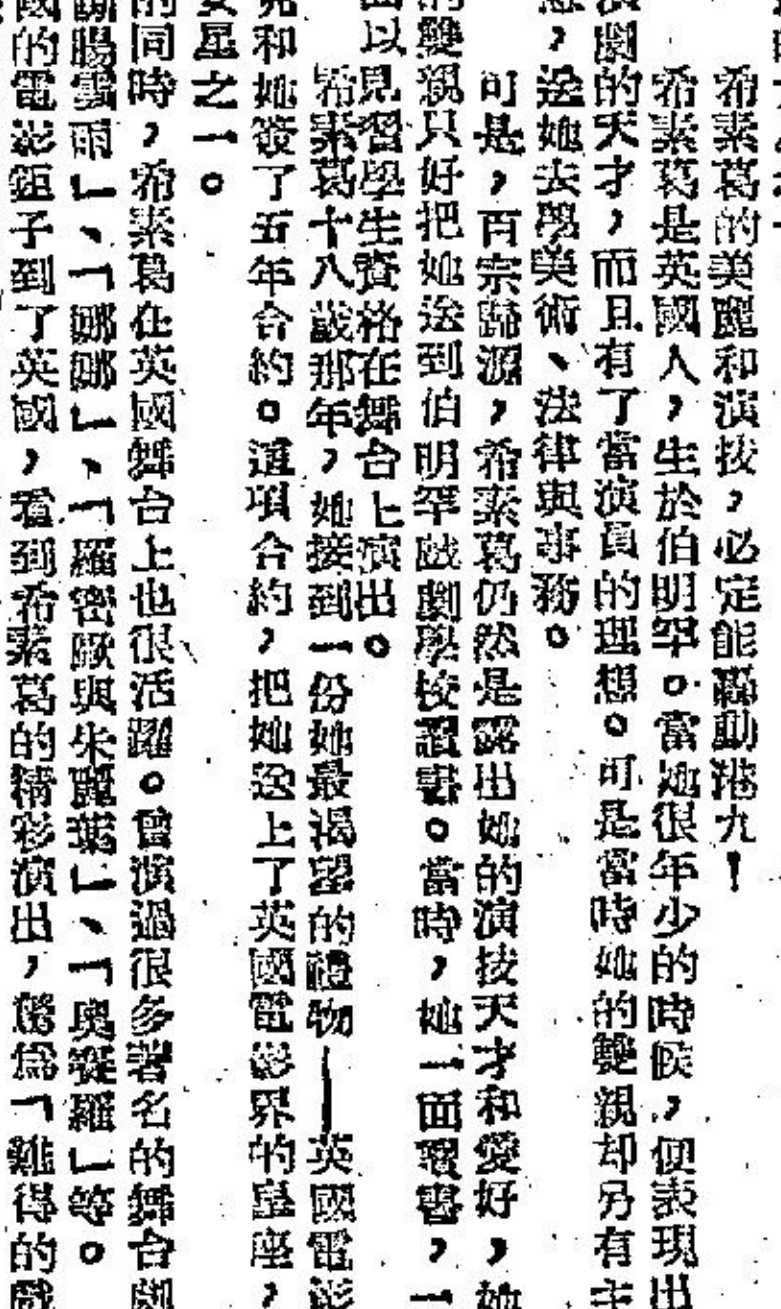 希素葛的美麗和演技，必定能轟動港九！
希素葛是英國人，生於伯明罕。當她很年少的時候，便表現出
演劇的天才，而且有了當演員的理想。可是當時她的雙親却另有主
，送她去學美術、法律與事務。
可是，百宗歸源，希素葛仍然是露出她的演技天才和愛好，她
的雙親只好把她送到伯明罕戲劇學校讀書。當時，她一面讀書，一
面以見習學生資格在舞台上演出。
希素葛十八歲那年，她接到一份她最渴望的禮物——英國電影
和她簽了五年合約。這項合約，把她送上了英國電影界的星座，
女星之一。
的同時，希素葛在英國舞台上也很活躍。曾演過很多著名的舞台劇
斷腸雲雨」、「娜娜」、「羅密歐與朱麗葉」、「奧賽羅」等。
國的電影鉅子到了英國，看到希素葛的精彩演出，驚為「難得的戲